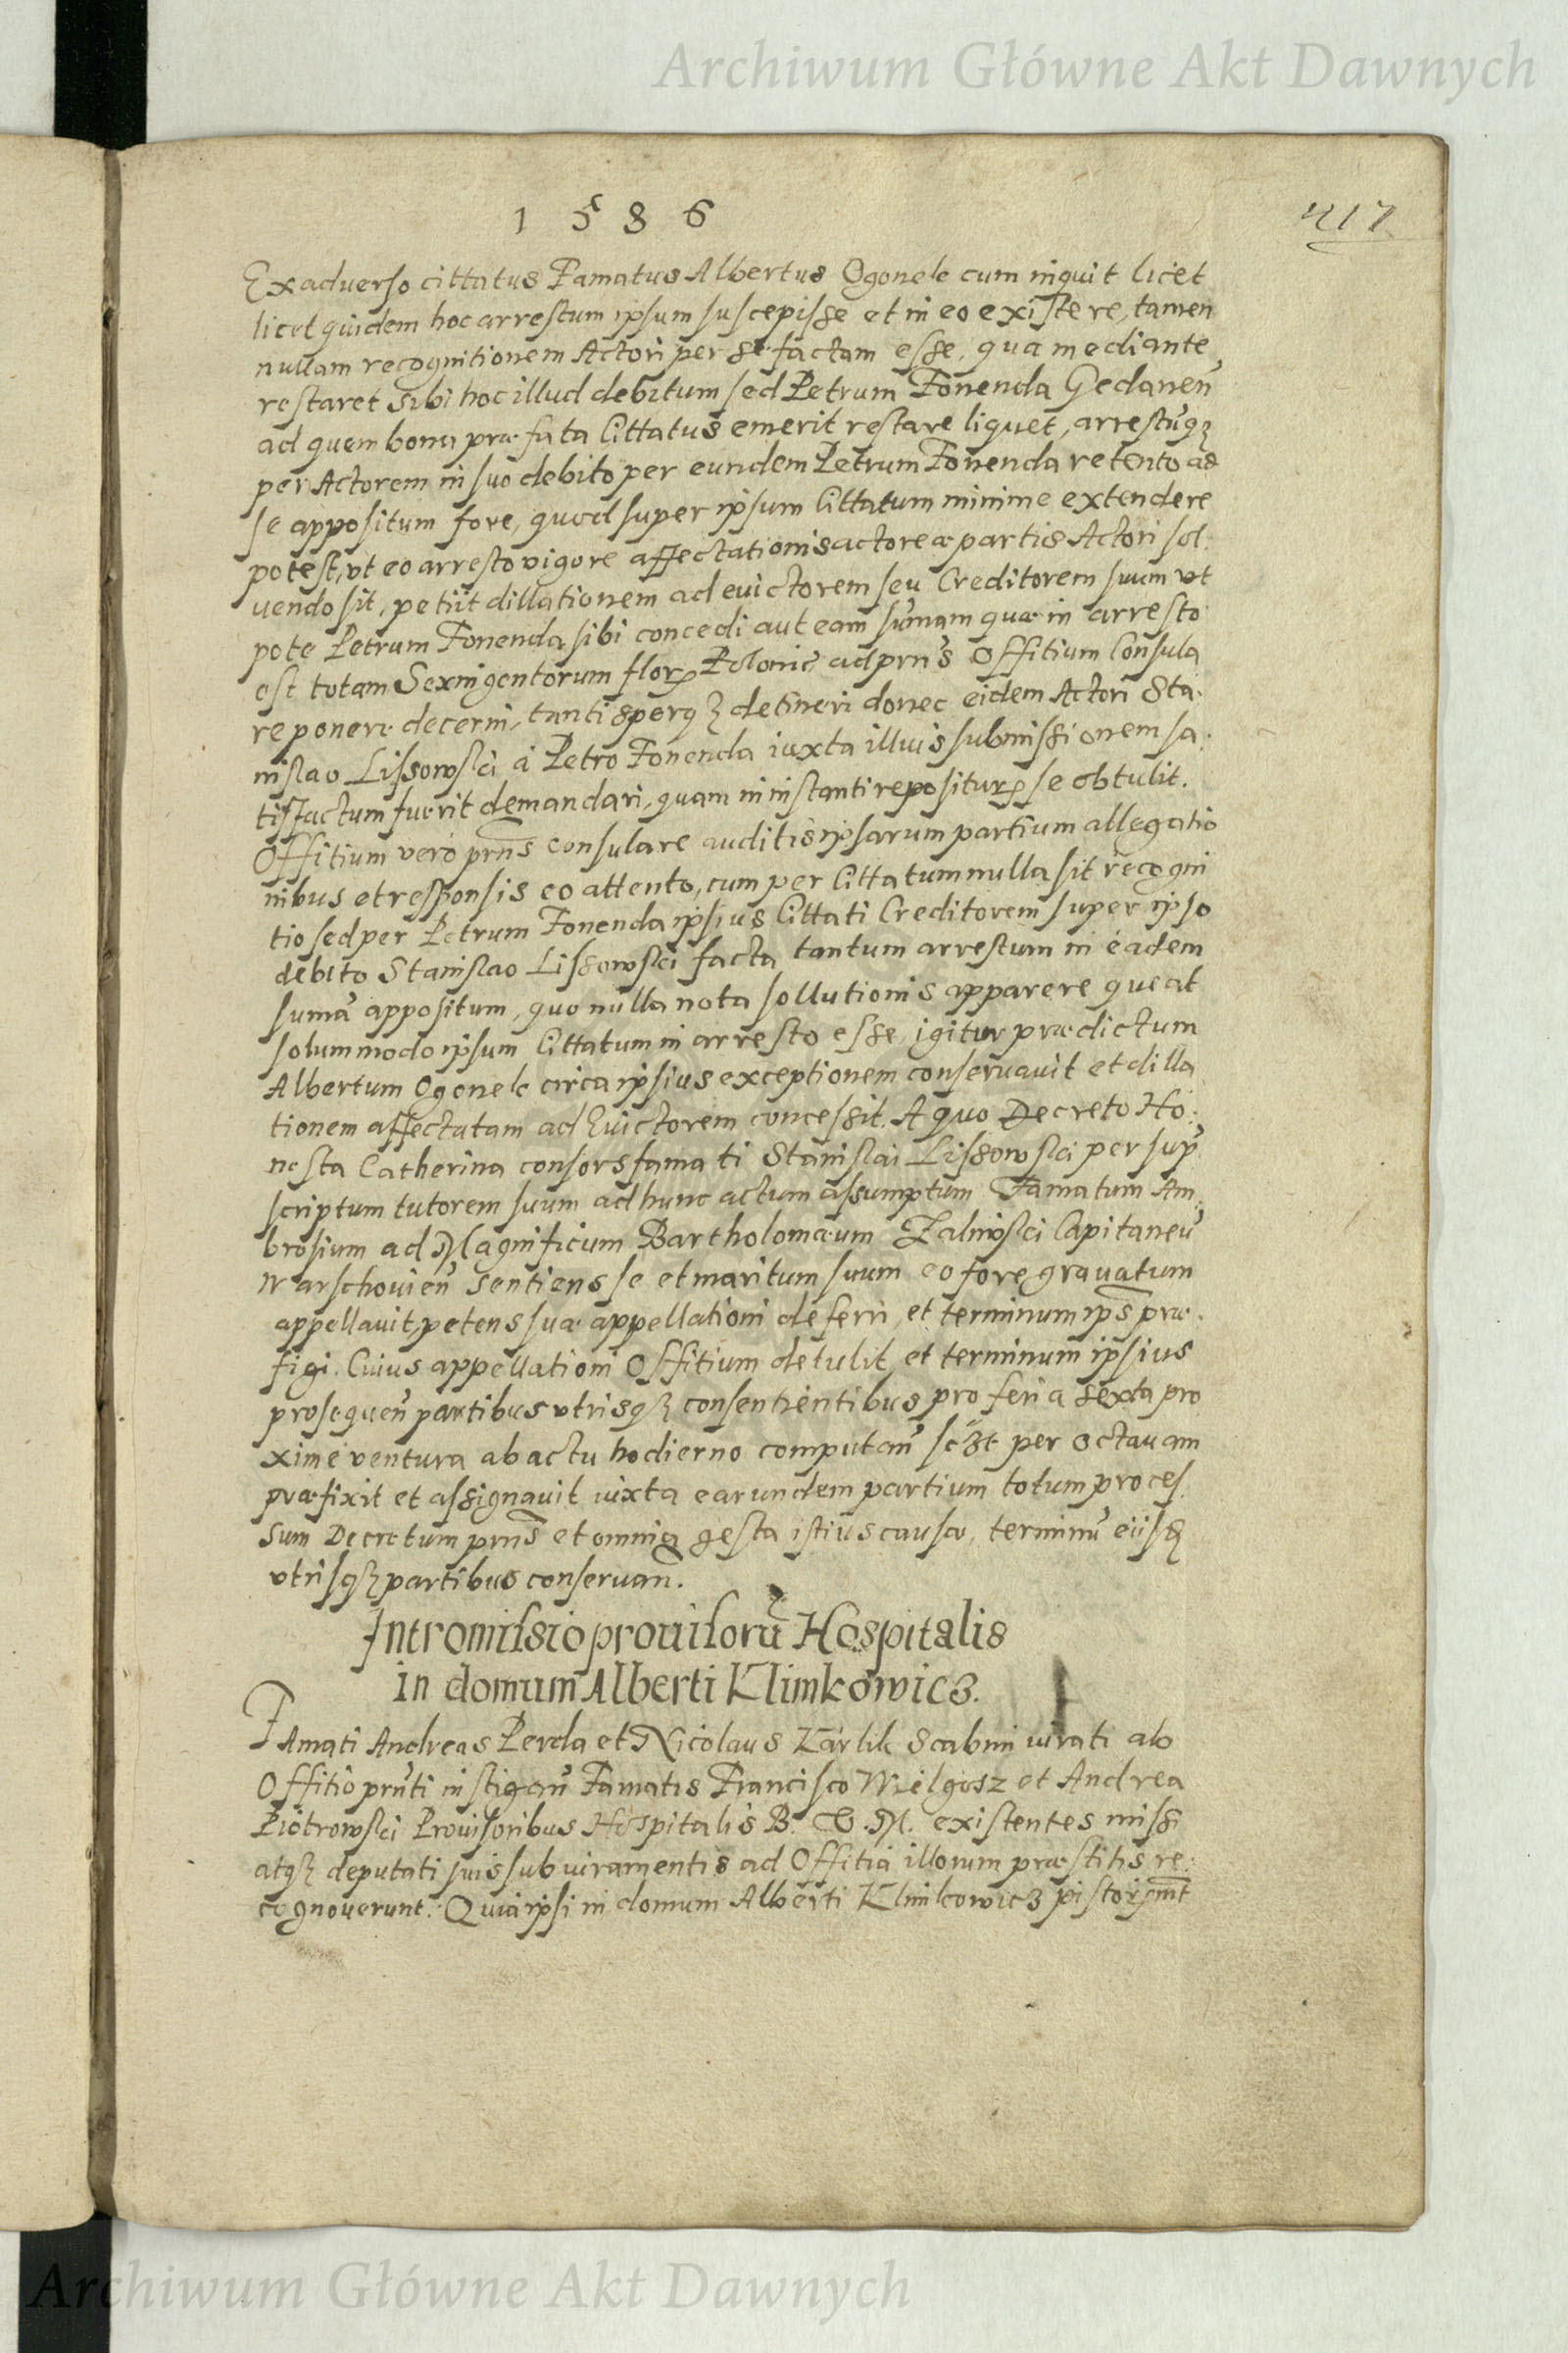 Archiwum Główne Akt Dawnych
1586
417
Ex aduerso cittatus Famatus Albertus Ogonek cum inquit licet
licet quidem hoc arrestum ipsum suscepisse et in eo existere, tamen
nullam recognitionem Actori per se factam esse, qua mediante
restaret sibi hoc illud debitum sed Petrum Fonenda Gedaneñ
ad quem bona præfata Cittatus emerit restare liquet, arrestũqȝ
per Actorem in suo debito per eundem Petrum Fonenda retento ad
se appositum fore, quod super ipsum Cittatum minime extendere
potest, vt eo arresto vigore affectationis actoreæ partis Actori sol:
uendo sit, petiit dillationem ad euictorem seu Creditorem suum vt
pote Petrum Fonenda sibi concedi aut eam sum̃am quæ in arresto
est totam Sexingentorum florꝝ Polonic̃ ad prñs Offitium Consula
re ponere decerni, tantisperqȝ detineri donec eidem Actori Sta:
nislao Lissowski à Petro Fonenda iuxta illius submissionem sa:
tisfactum fuerit demandari, quam in instanti repositurꝝ se obtulit.
Offitium verò prñs consulare auditis ipsarum partium allegatio
nibus et responsis eo attento, cum per Cittatum nulla sit recogni
tio sed per Petrum Fonenda ipsius Cittati Creditorem super ipso
debito Stanislao Lissowski facta tantum arrestum in eadem
sum̃a appositum, quo nulla nota sollutionis apparere queat
solummodo ipsum Cittatum in arresto esse, igitur prædictum
Albertum Ogonek circa ipsius exceptionem conseruauit et dilla
tionem affectatam ad Euictorem concessit. A quo Decreto Ho:
nesta Catherina consors famati Stanislai Lissowski per sup̃
scriptum tutorem suum ad hunc actum assumptum Famatum Am:
brosium ad Magnificum Bartholomæum Zaliwski Capitaneũ
Warschouieñ sentiens se et maritum suum eo fore grauatum
appellauit, petens suæ appellationi deferri, et terminum ips̃ præ:
figi. Cuius appellationi Offitium detulit, et terminum ipsius
prosequeñ partibus vtrisqȝ consentientibus pro feria sexta pro
ximè ventura ab actu hodierno computañ scȝt per octauam
præfixit et assignauit iuxta earundem partium totum proces
sum Decretum prñs et omnia gesta istius causæ, terminũ eiisđ
vtrisqȝ partibus conseruañ.
Intromissio prouisorũ Hospitalis
in domum Alberti Klimkowicz.
Famati Andreas Perda et Nicolaus Karlik Scabini iurati ab
Offitio prñti instigañ Famatis Francisco Wielgosz et Andrea
Piotrowski Prouisoribus Hospitalis B. V. M. existentes missi
atqȝ deputati suis sub iuramentis ad Offitia illorum præstitis re:
cognouerunt. Quia ipsi in domum Alberti Klimkowicz pistoris
Archiwum Główne Akt Dawnych